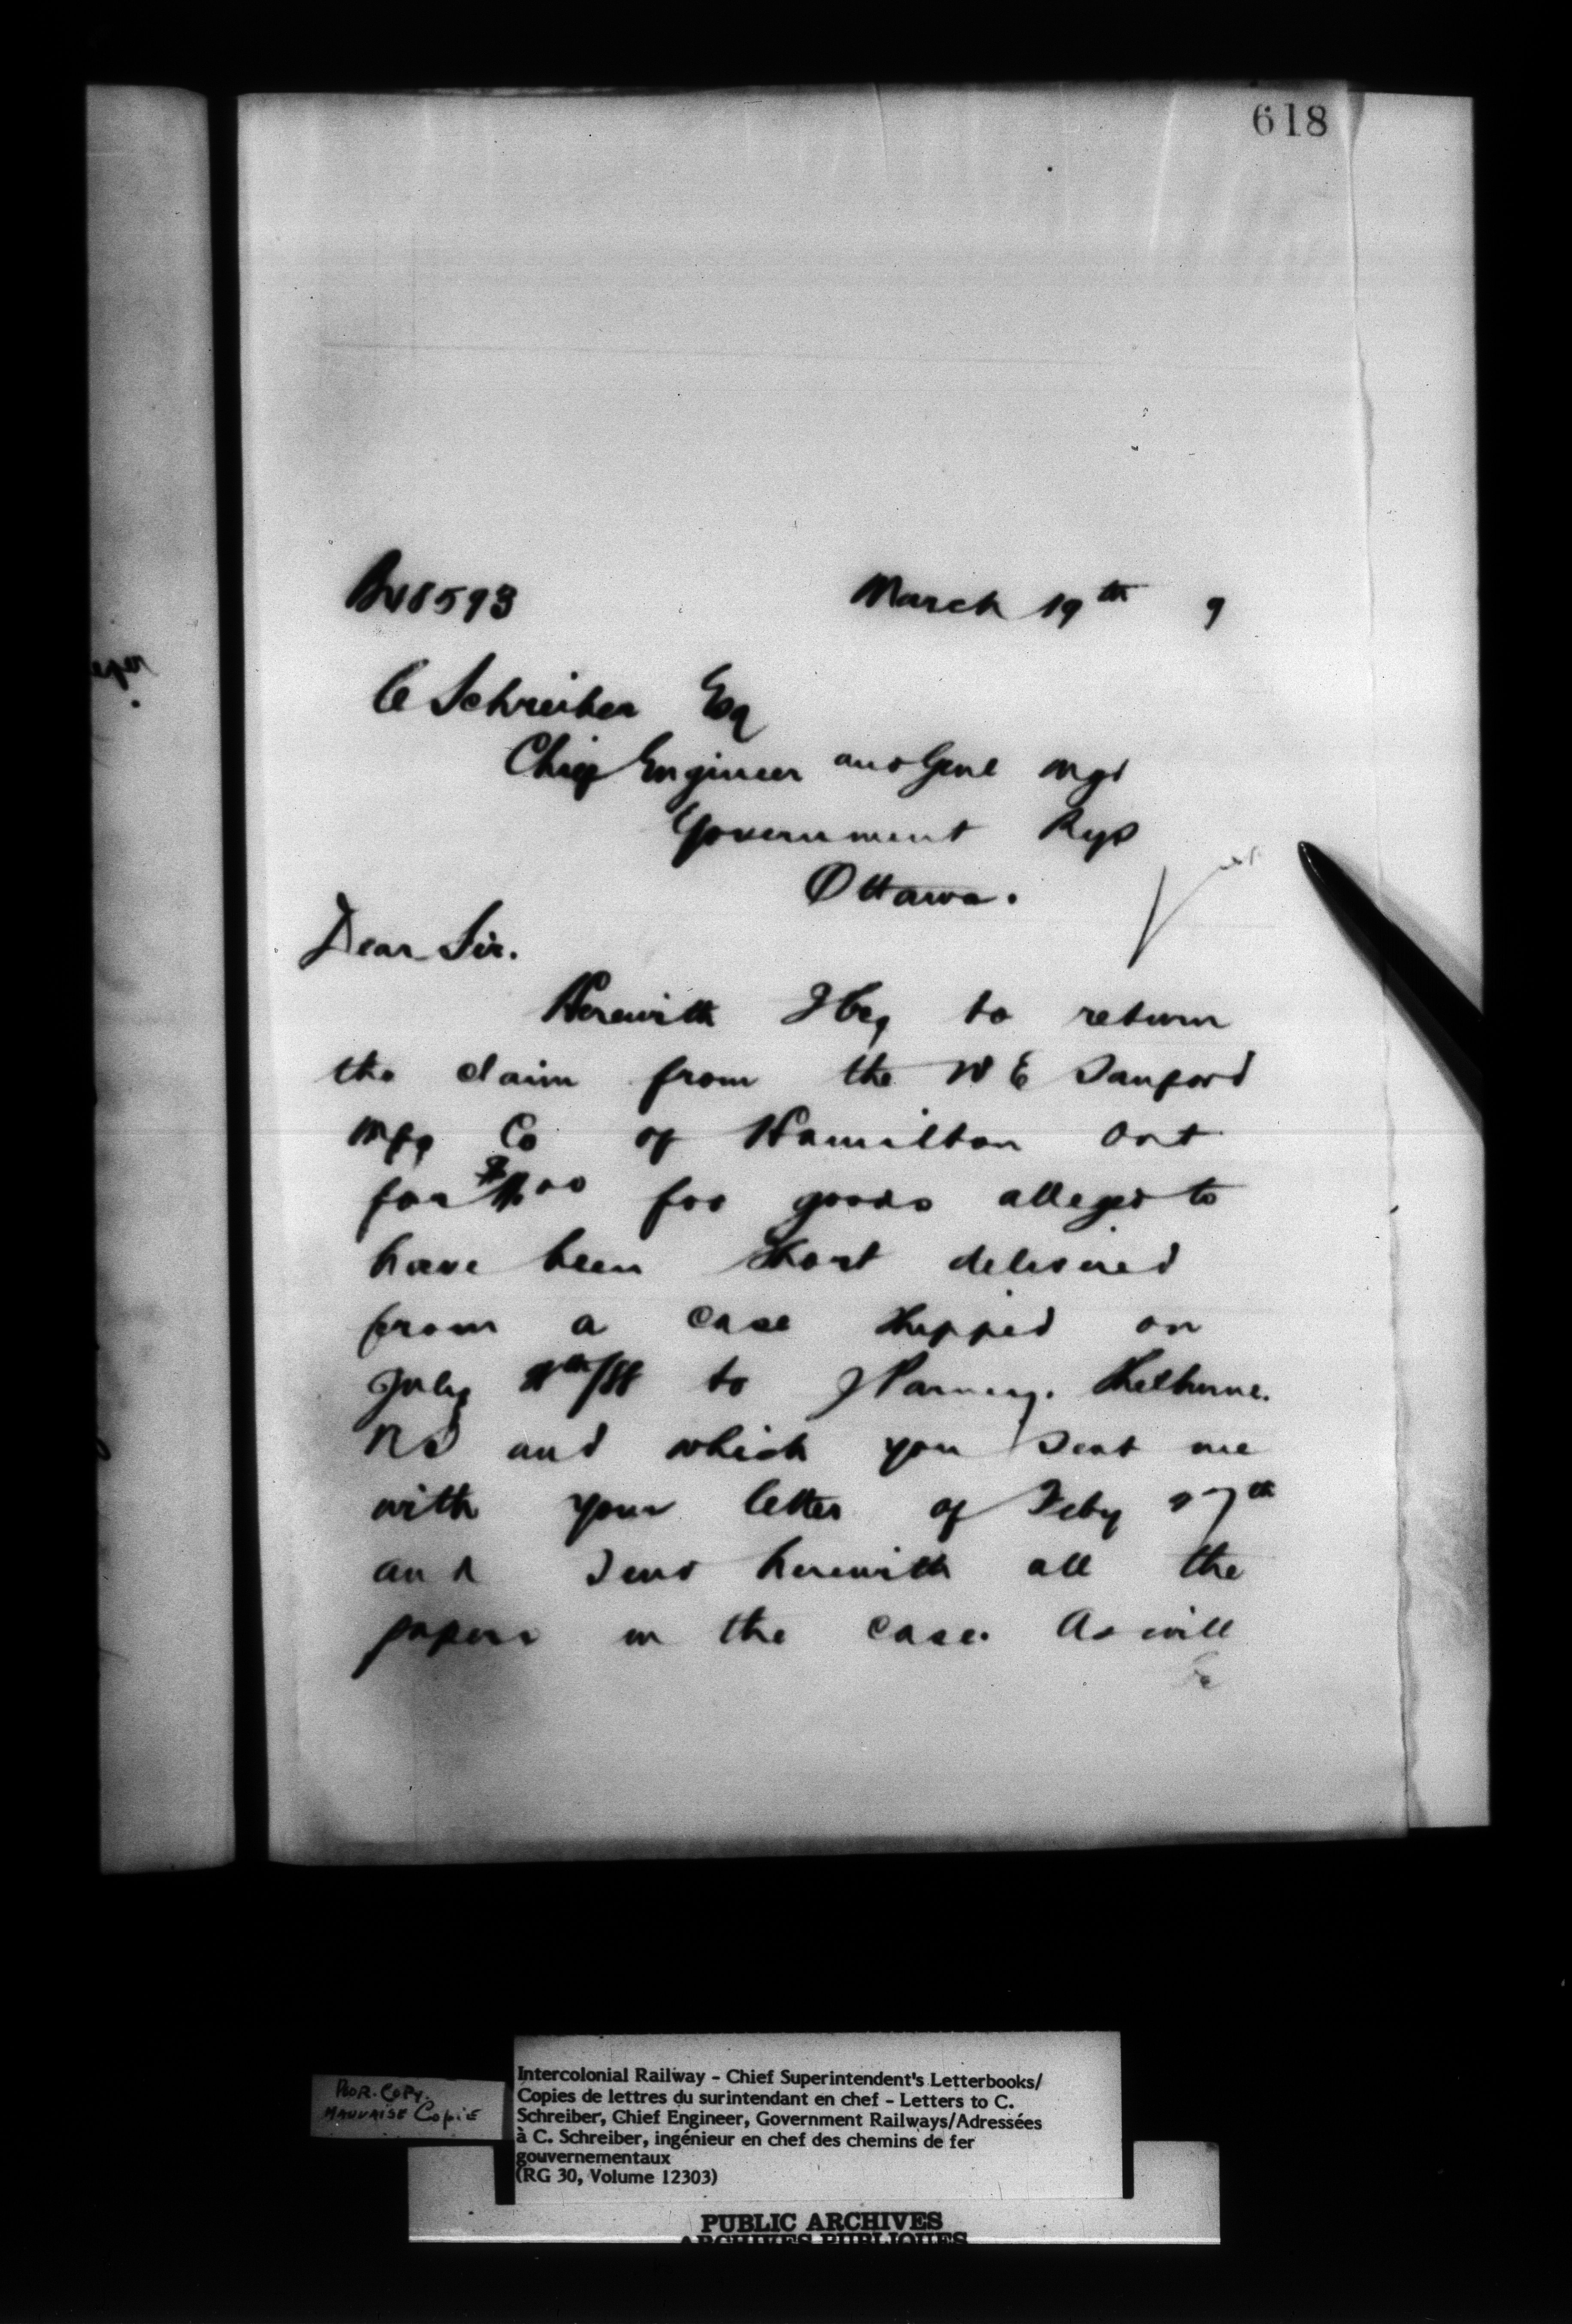 618
March 19th 9
C Schreiber Esq
Chief Engineer and Genl Mgr
Government Rys
Ottawa.
Dear Sir.
Herewith I beg to return
the claim from the W E Sanford
Mfg Co of Hamilton Ont
for for goods alleged to
have been short delivered
from a case shipped on
July to J Shelburne.
NS and which you sent me
with your letter of Feby 27th
and send herewith all the
papers in the case. As will
be
POOR. COPY.
MAUVAISE COPIE
Intercolonial Railway - Chief Superintendent's Letterbooks/
Copies de lettres du surintendant en chef - Letters to C.
Schreiber, Chief Engineer, Government Railways/Adressées
à C. Schreiber, ingénieur en chef des chemins de fer
gouvernementaux
(RG 30, Volume 12303)
PUBLIC ARCHIVES
ARCHIVES PUBLIQUES